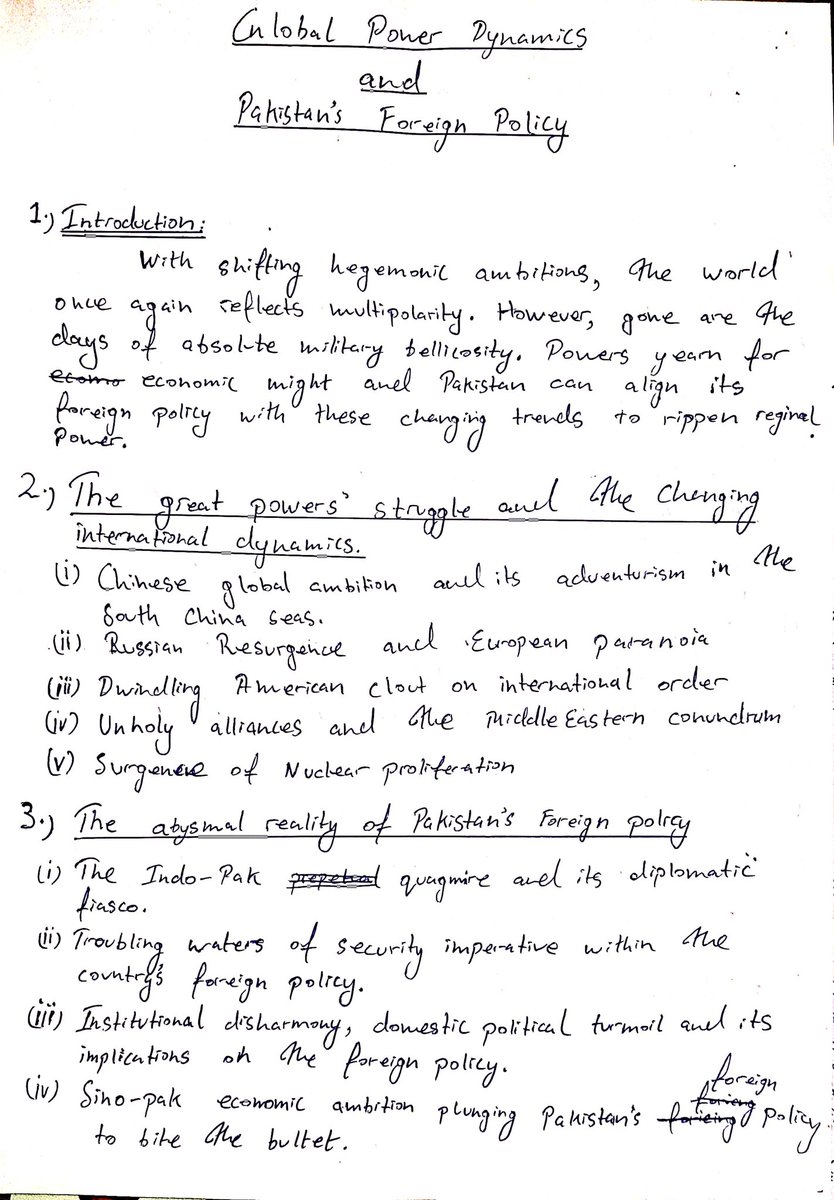 Global Power Dynamics
and
Pakistan's Foreign Policy
1.) Introduction:
With shifting hegemonic ambitions, the world
once again reflects multipolarity. However, gone are the
days of absolute military bellicosity. Powers yearn for
ecomo economic might and Pakistan can align its
foreign policy with these changing trends to rippen reginal
Power.
2.) The great powers' struggle and the Changing
international dynamics.
(i) Chinese global ambition and its adventurism in the
South China seas.
(ii) Russian Resurgence and European paranoia
(iii) Dwindling American clout on international order
(iv) Unholy alliances and the Middle Eastern conundrum
(v) Surgence of Nuclear proliferation
3.) The abysmal reality of Pakistan's Foreign policy
(i) The Indo-Pak prepetual quagmire and its diplomatic
fiasco.
(ii) Troubling waters of security imperative within the
country's foreign policy.
(iii) Institutional disharmony, domestic political turmoil and its
implications on the foreign policy.
foreign
(iv) Sino-pak economic ambition plunging Pakistan's policy
to bite the bullet.